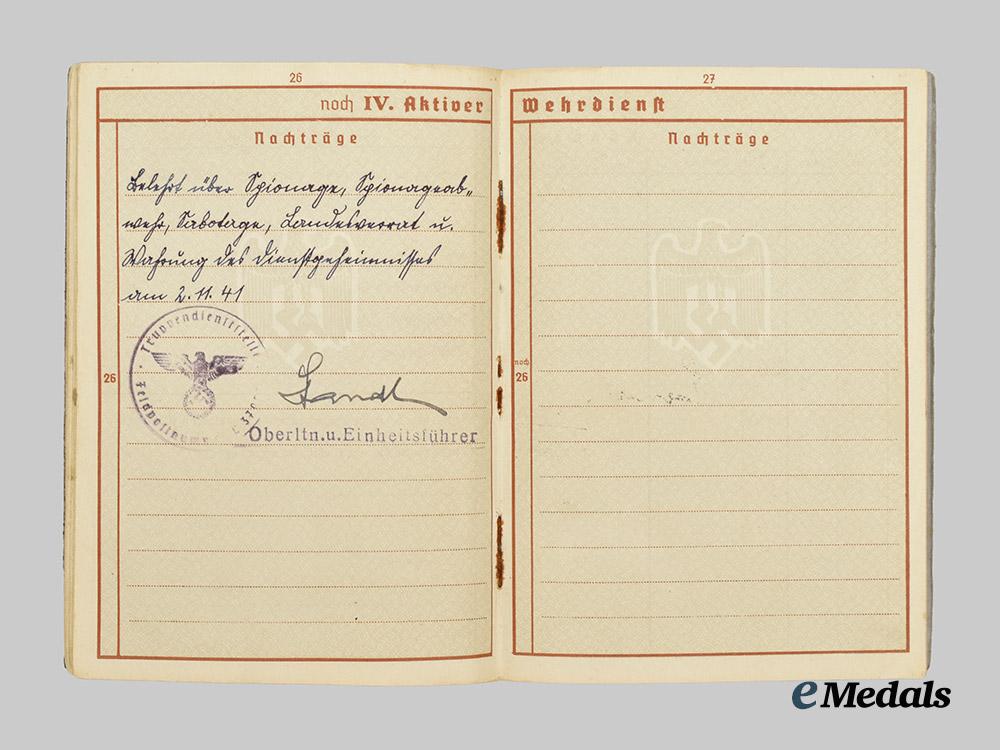 26
noch IV. Aktiver
Nachträge
Belehrt über Spionage, Spionageab„
wehr, Sabotage, Landesverrat u.
Wahrung des Dienstgeheimnisses
am 2.11.41
Truppendienststelle
Feldpostnummer
26
Oberltn.u.Einheitsführer
27
Wehrdienst
Nachträge
noch
26
eMedals